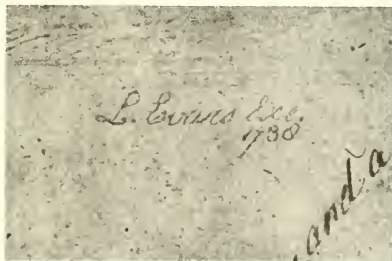 L. Evans Exc.
1738
and a